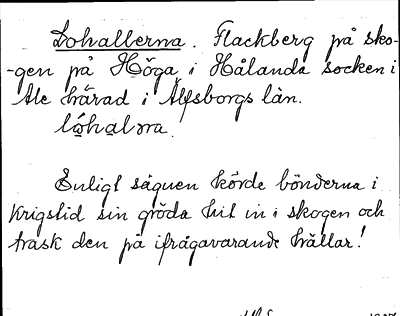 Lohallerna. Flackberg på sko-
-gen på Höga i Hålanda socken i
Ale härad i Älfsborgs län.
Enligt sägnen körde bönderna i
krigstid sin gröda hit in i skogen och
trask den på ifrågavarande hällar!